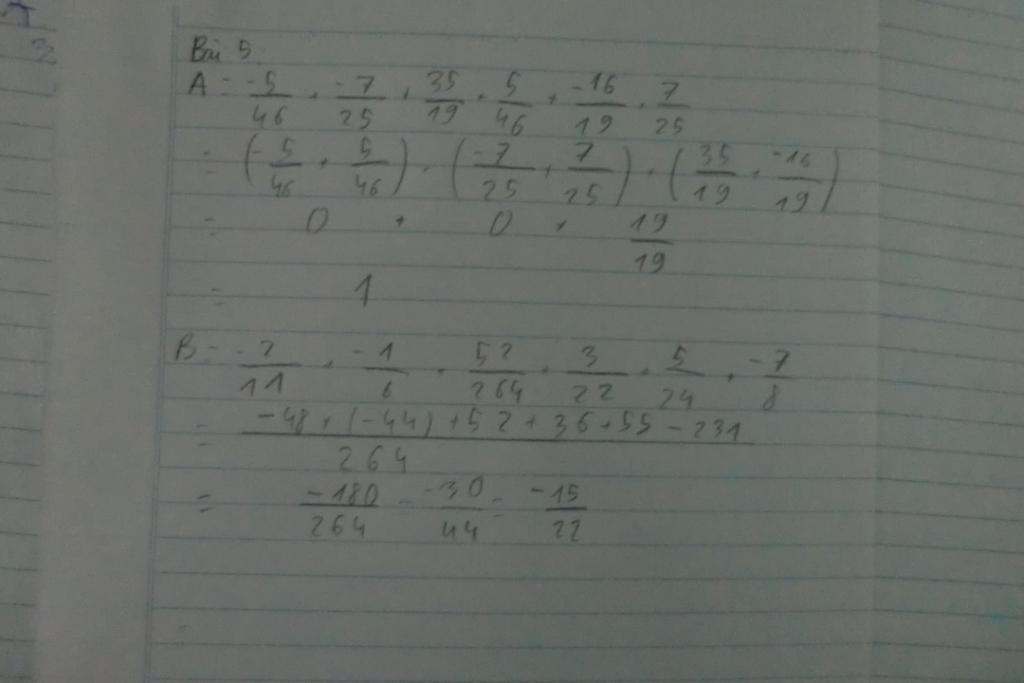 Bài 5
A = -5/46 + -7/25 + 35/19 + 5/46 + -16/19 + 7/25
= (-5/46 + 5/46) + (-7/25 + 7/25) + (35/19 + -16/19)
= 0 + 0 + 19/19
= 1
B = -2/11 + -1/6 + 52/264 + 3/22 + 5/24 + -7/8
= -48 + (-44) + 52 + 36 + 55 - 231/264
= -180/264 = -30/44 = -15/22